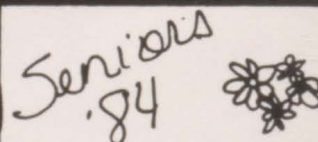 Seniors
'84